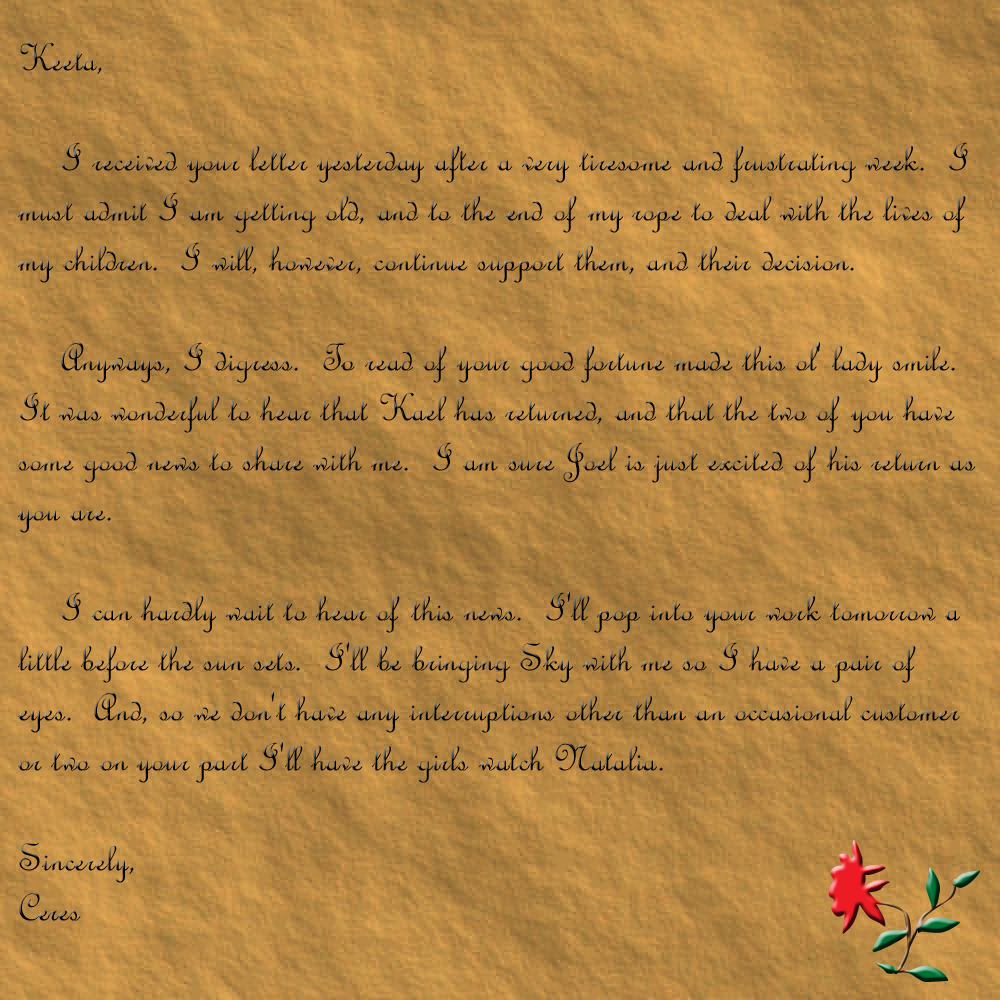 Keeta,
I received your letter yesterday after a very tiresome and frustrating week. I
must admit I am getting old, and to the end of my rope to deal with the lives of
my children. I will, however, continue support them, and their decision.
Anyways, I digress. To read of your good fortune made this ol' lady smile.
It was wonderful to hear that Kael has returned, and that the two of you have
some good news to share with me. I am sure Joel is just excited of his return as
you are.
I can hardly wait to hear of this news. I'll pop into your work tomorrow a
little before the sun sets. I'll be bringing Sky with me so I have a pair of
eyes. And, so we don't have any interruptions other than an occasional customer
or two on your part I'll have the girls watch Natalia.
Sincerely,
Ceres